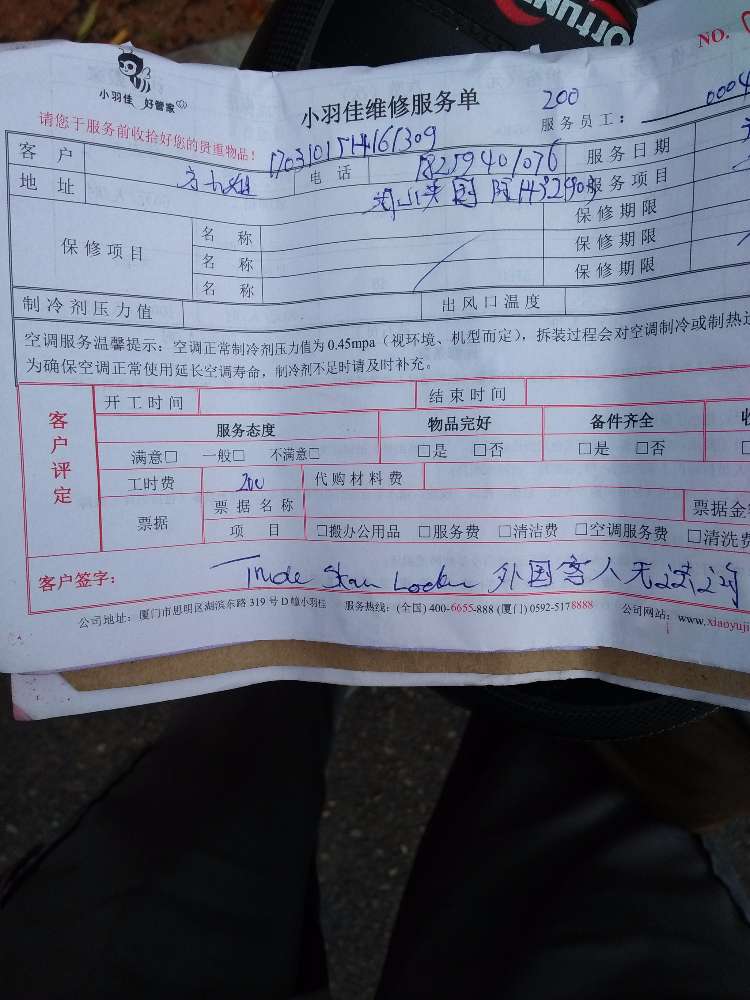 FORTUN
NO.
小羽佳 好管家
小羽佳维修服务单
200
请您于服务前收拾好您的贵重物品!
服务员工: 0004
客户 方小姐 1703101514161309 电话 18259401076 服务日期
地址 服务项目
保修项目 名称 保修期限
名称 保修期限
名称 保修期限
制冷剂压力值 出风口温度
空调服务温馨提示:空调正常制冷剂压力值为0.45mpa(视环境、机型而定),拆装过程会对空调制冷或制热
为确保空调正常使用延长空调寿命,制冷剂不足时请及时补充。
客户评定
开工时间 结束时间
服务态度 物品完好 备件齐全
满意□ 一般□ 不满意□ □是 □否 □是 □否
工时费 200 代购材料费
票据 票据名称 票据金
项目 □搬办公用品 □服务费 □清洁费 □空调服务费 □清洗费
客户签字: 外国客人无法
公司地址:厦门市思明区湖滨东路319号D幢小羽佳 服务热线:(全国)400-6655-888 (厦门)0592-5178888 公司网站:www.xiaoyuji